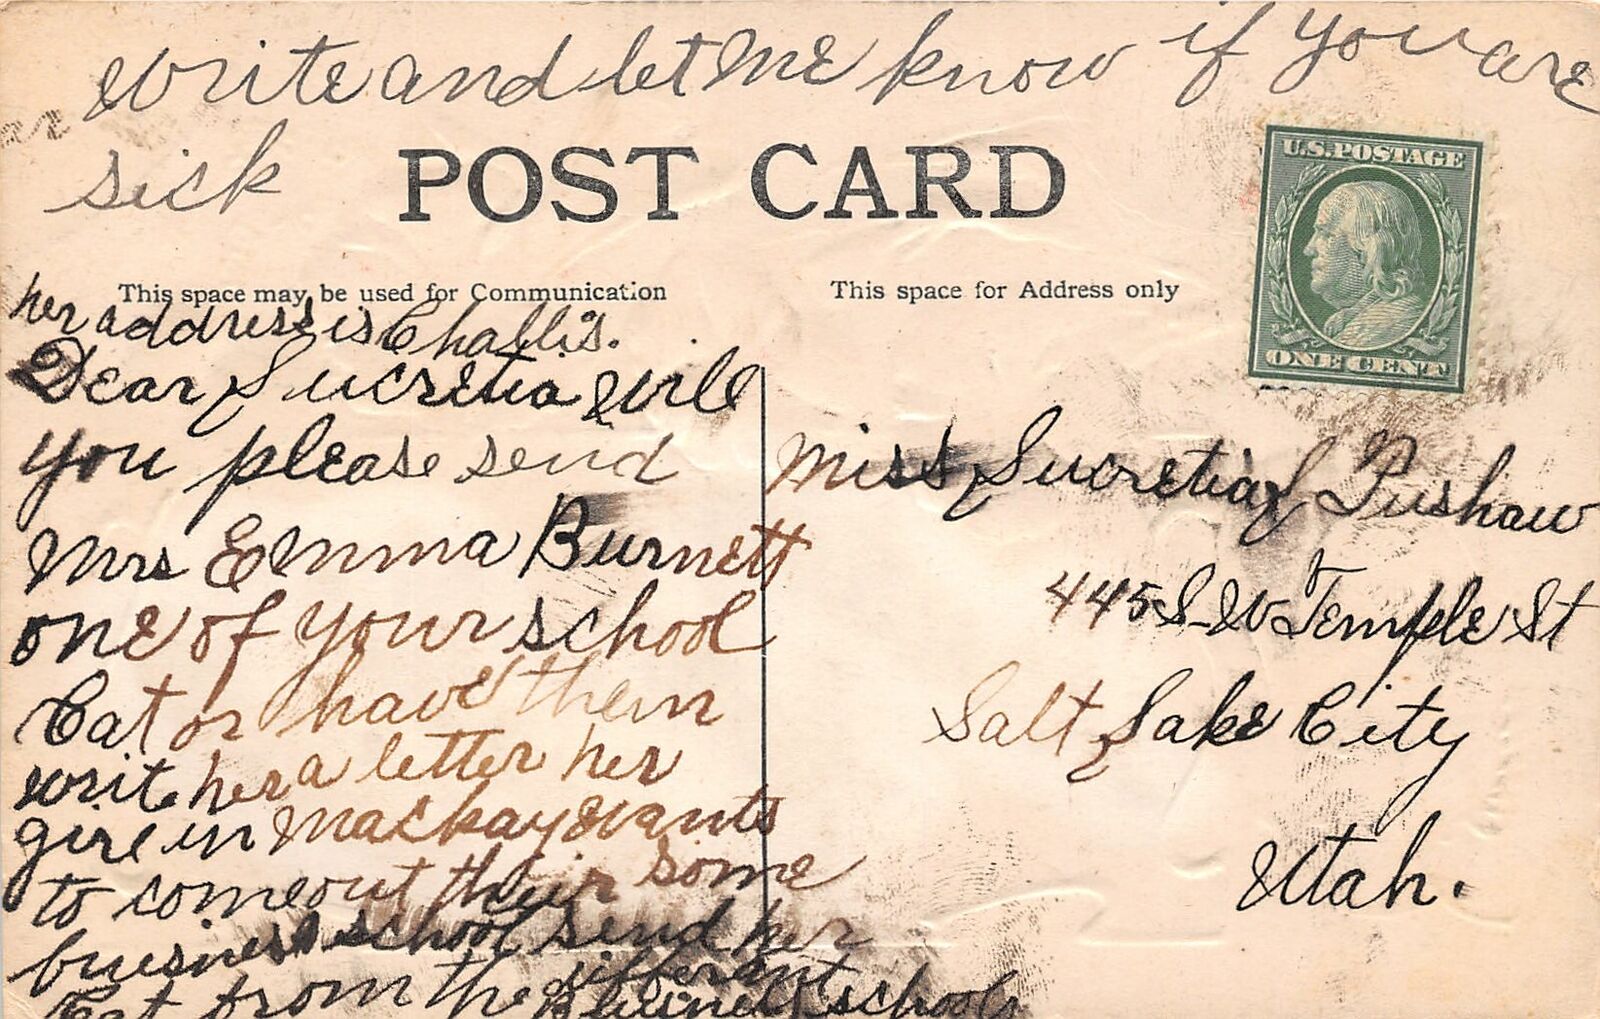 Write and let Me know if you are
sick
POST CARD
U.S. POSTAGE
ONE CENT
This space may be used for Communication
This space for Address only
her address is Challis.
Dear Lucretia Will
you please send
Mrs Emma Burnett
one of your school
Cat or have them
write her a letter her
girl in Mackay wants
to come out their some
buisness school send her
Cat from the different
Buisness schools
Miss Lucretia Pushaw
445 S-W Temple St
Salt Lake City
Utah.